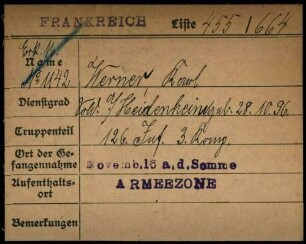 FRANKREICH Liste 455/664
Erk. N.
Name
№ 1142 Werner, Karl
Dienstgrad Sold. / Heidenheim geb. 28.10.96.
Truppenteil 126. Inf. 3. Komp.
Ort der Ge-
fangennahme Novemb.16 a.d.Somme
Aufenthalts-
ort ARMEEZONE
Bemerkungen